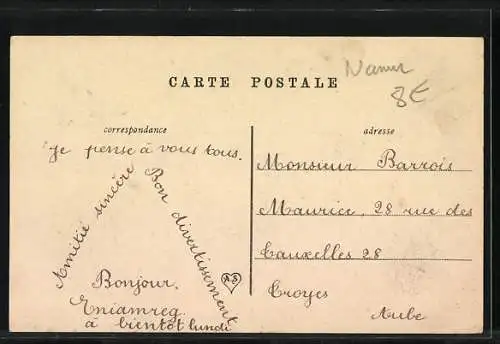 Namur
8€
CARTE POSTALE
correspondance
adresse
Je pense à vous tous.
Amitié sincère
Bon divertissement
Bonjour.
Eniamreg.
à bientôt lundi
Monsieur Barrois
Maurice, 28 rue des
Tauxelles 28
Troyes
Aube